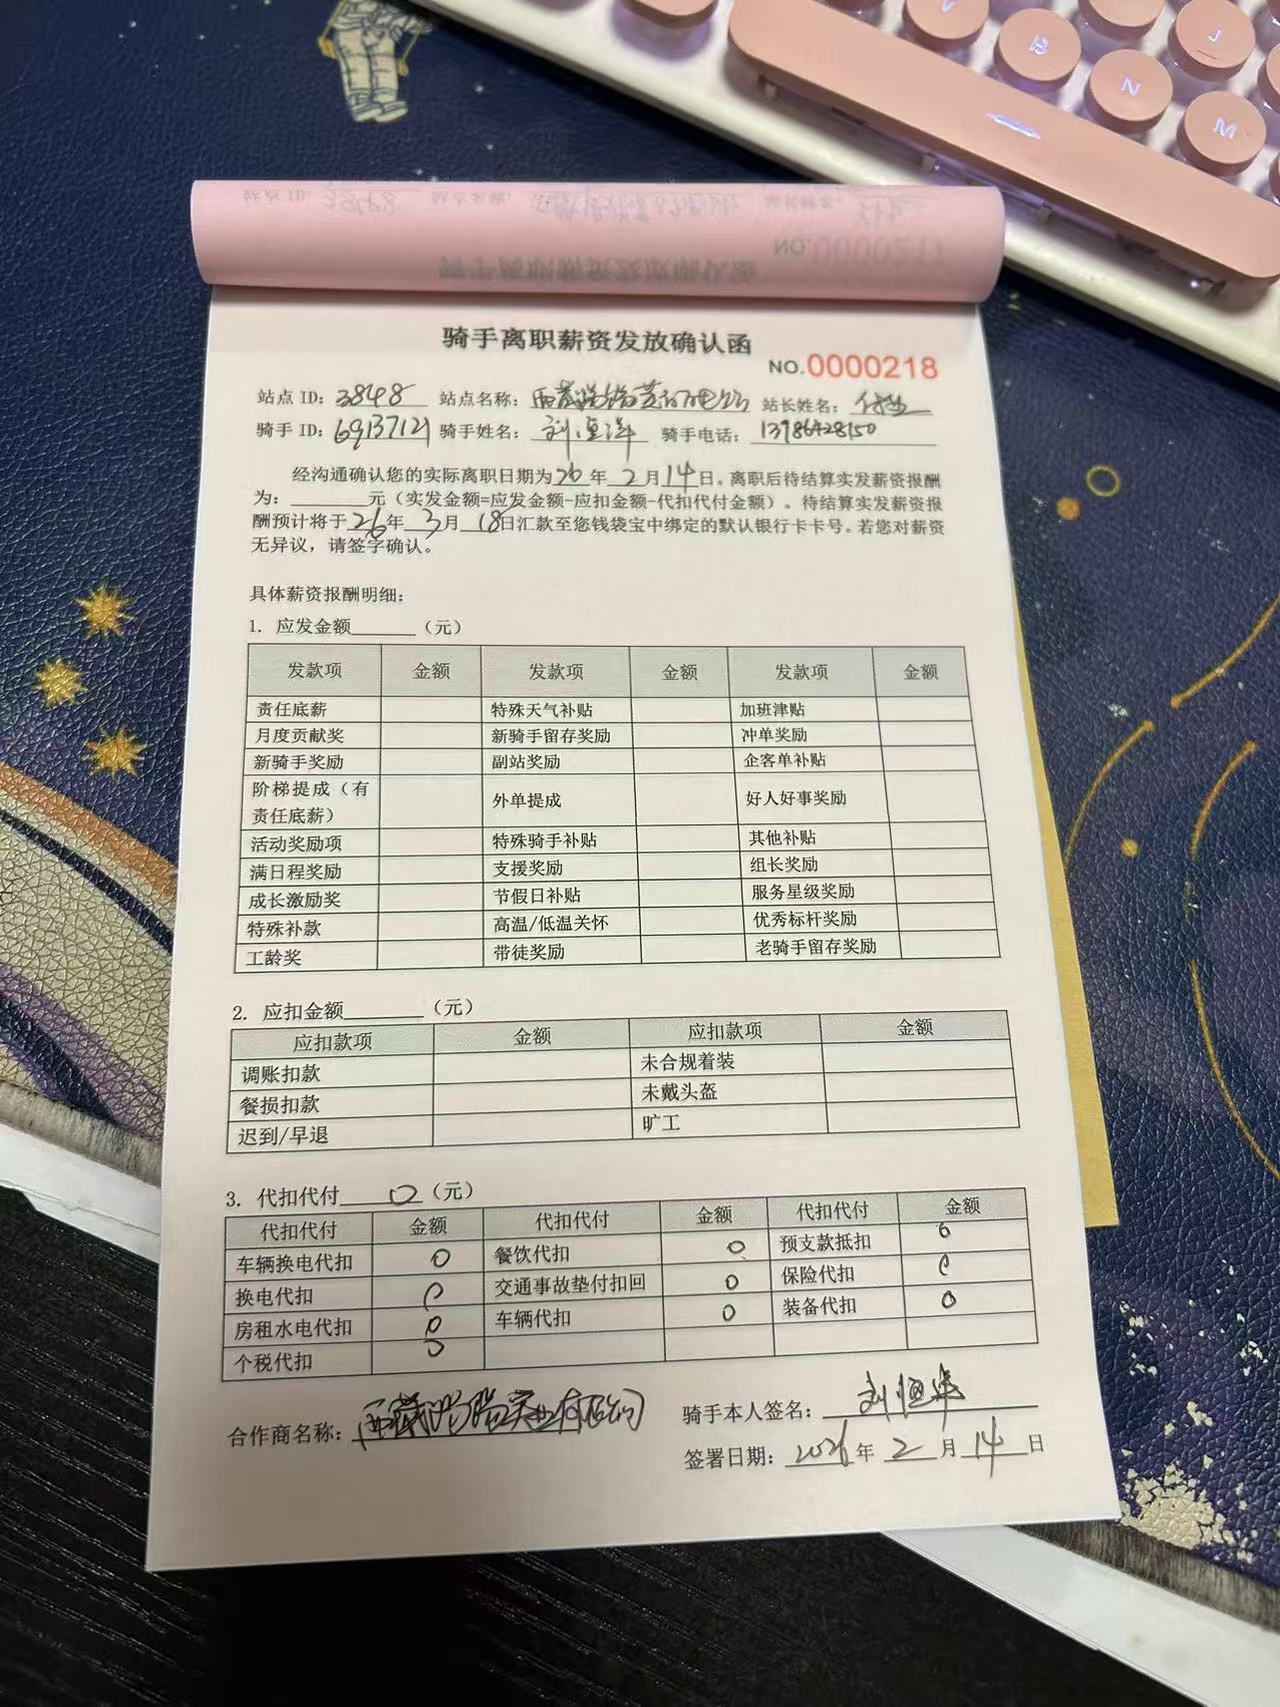 骑手离职薪资发放确认函
NO.0000218
站点 ID: 3848 站点名称: 站长姓名:
骑手 ID: 69137121 骑手姓名: 刘恒洋 骑手电话: 13786428150
经沟通确认您的实际离职日期为26年2月14日。离职后待结算实发薪资报酬
为:______元（实发金额=应发金额-应扣金额-代扣代付金额）。待结算实发薪资报
酬预计将于26年3月18日汇款至您钱袋宝中绑定的默认银行卡卡号。若您对薪资
无异议，请签字确认。
具体薪资报酬明细:
1. 应发金额______（元）
发款项 金额 发款项 金额 发款项 金额
责任底薪 特殊天气补贴 加班津贴
月度贡献奖 新骑手留存奖励 冲单奖励
新骑手奖励 副站奖励 企客单补贴
阶梯提成（有责任底薪） 外单提成 好人好事奖励
活动奖励项 特殊骑手补贴 其他补贴
满日程奖励 支援奖励 组长奖励
成长激励奖 节假日补贴 服务星级奖励
特殊补款 高温/低温关怀 优秀标杆奖励
工龄奖 带徒奖励 老骑手留存奖励
2. 应扣金额______（元）
应扣款项 金额 应扣款项 金额
调账扣款 未合规着装
餐损扣款 未戴头盔
迟到/早退 旷工
3. 代扣代付 0 （元）
代扣代付 金额 代扣代付 金额 代扣代付 金额
车辆换电代扣 0 餐饮代扣 0 预支款抵扣 0
换电代扣 0 交通事故垫付扣回 0 保险代扣 0
房租水电代扣 0 车辆代扣 0 装备代扣 0
个税代扣 0
合作商名称: 骑手本人签名: 刘恒洋
签署日期: 2026年2月14日
V
B
N
J
M